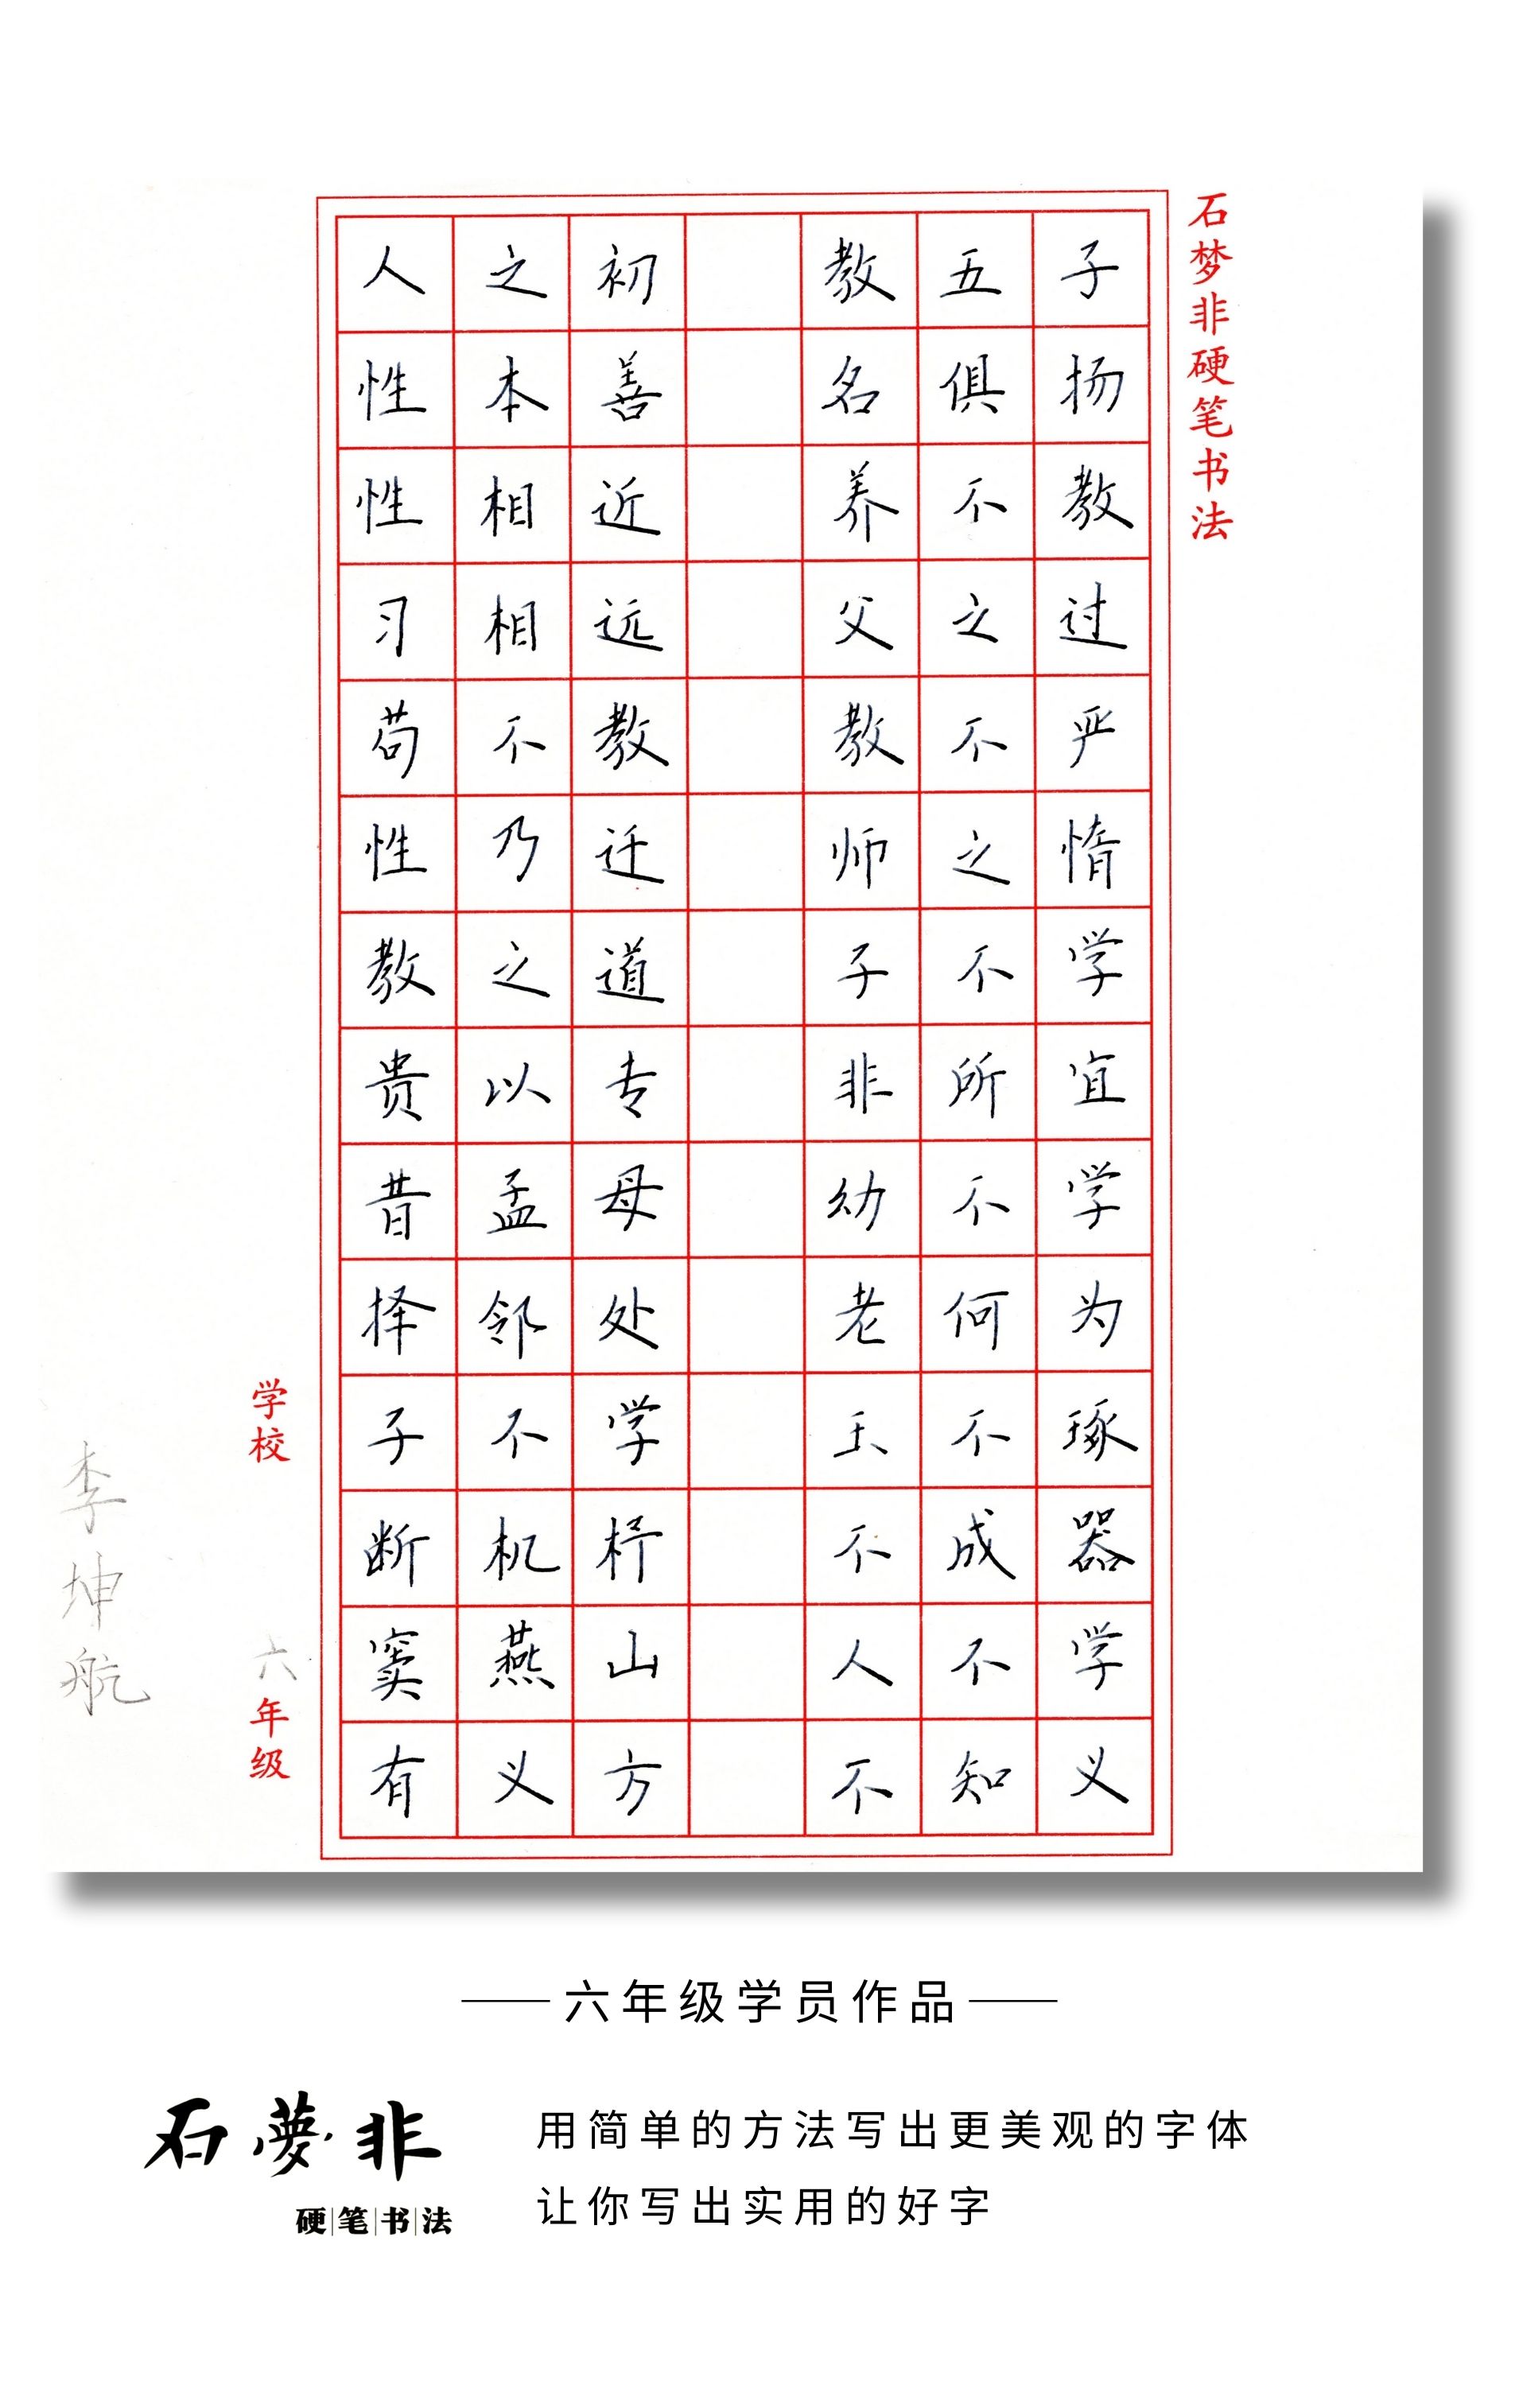 石梦非硬笔书法
人之初
性本善
性相近
习相远
苟不教
性乃迁
教之道
贵以专
昔孟母
择邻处
子不学
断机杼
窦燕山
有义方
教五子
名俱扬
养不教
父之过
教不严
师之惰
子不学
非所宜
幼不学
老何为
玉不琢
不成器
人不学
不知义
学校
六年级
李坤航
六年级学员作品
石夢非
硬笔书法
用简单的方法写出更美观的字体
让你写出实用的好字